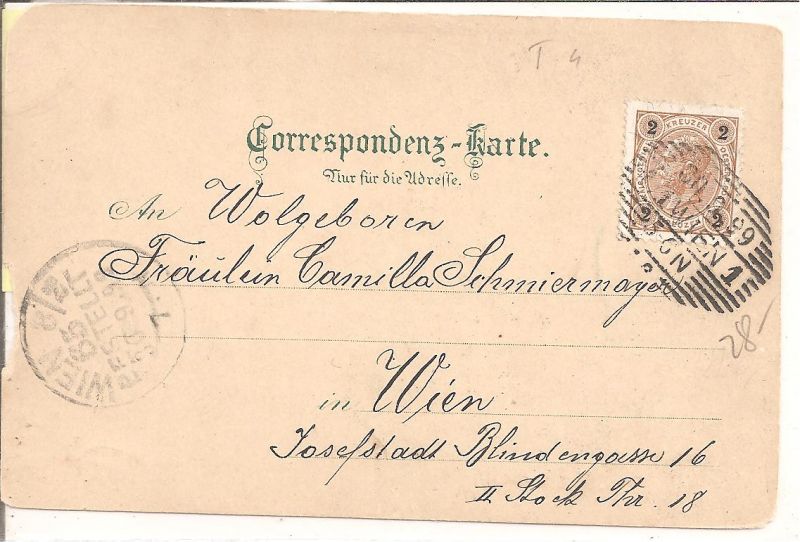 T 4
Correspondenz-Karte.
Nur für die Adresse.
2 KREUZER 2
2 2
WIEN 1
99
An Wolgeboren
Fräulein Camilla Schmiermayer
WIEN 8/2
BESTELLT
in Wien
Josefstadt Blindengasse 16
II Stock Thr. 18
28-